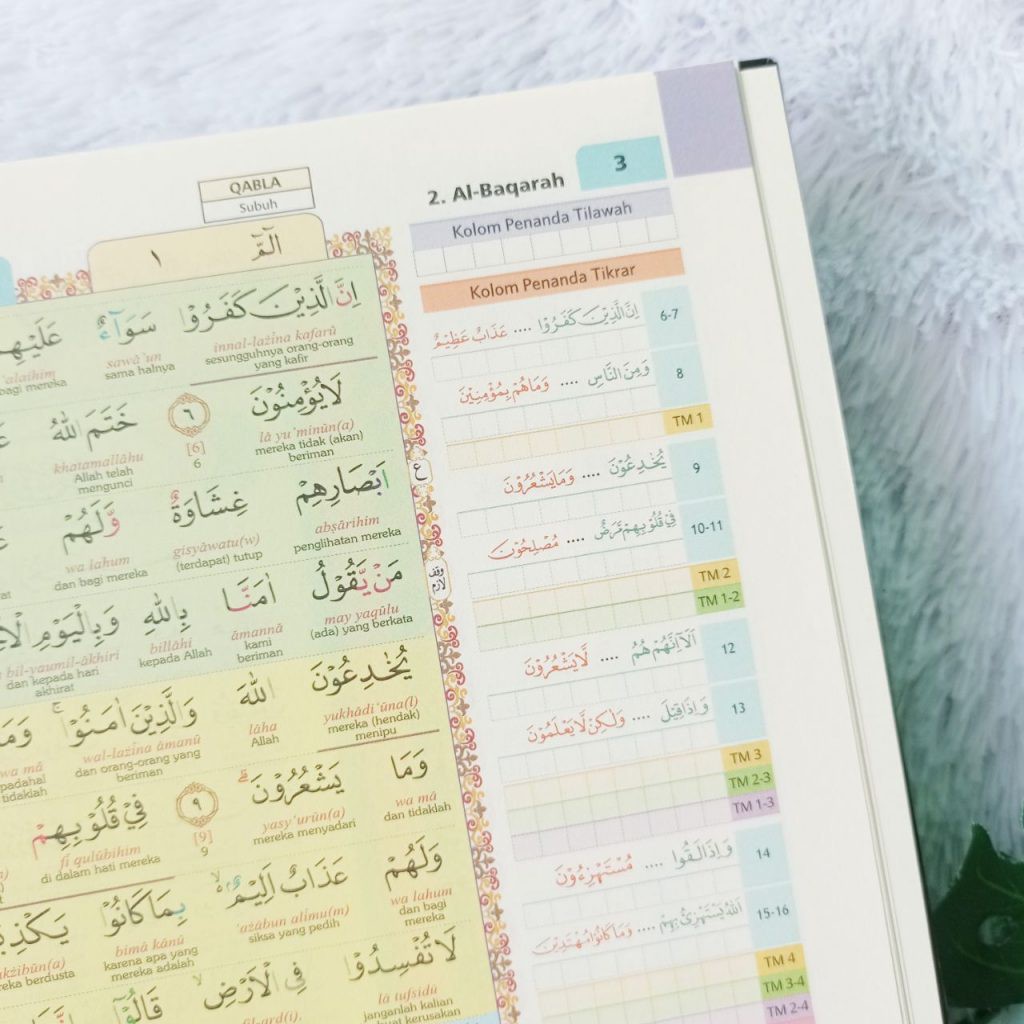 3
2. Al-Baqarah
QABLA
Subuh
الٓمّٓ ١
اِنَّ الَّذِيْنَ كَفَرُوْا سَوَاۤءٌ عَلَيْهِمْ
innal-lażīna kafarū sawā`un 'alaihim
sesungguhnya orang-orang yang kafir sama halnya bagi mereka
لَا يُؤْمِنُوْنَ ٦ خَتَمَ اللّٰهُ
lā yu'minūn(a) [6] khatamallāhu
mereka tidak (akan) beriman 6 Allah telah mengunci
اَبْصَارِهِمْ غِشَاوَةٌ وَّلَهُمْ
abṣārihim gisyāwatu(w) wa lahum
penglihatan mereka (terdapat) tutup dan bagi mereka
مَنْ يَّقُوْلُ اٰمَنَّا بِاللّٰهِ وَبِالْيَوْمِ
may yaqūlu āmannā billāhi bil-yaumil-ākhiri
(ada) yang berkata kami beriman kepada Allah dan kepada hari akhirat
يُخٰدِعُوْنَ اللّٰهَ وَالَّذِيْنَ اٰمَنُوْا ۚ وَمَا
yukhādi'ūna(l) lāha wal-lażīna āmanū wa mā
mereka (hendak) menipu Allah dan orang-orang yang beriman padahal tidaklah
وَمَا يَشْعُرُوْنَ ۗ ٩ فِيْ قُلُوْبِهِمْ
wa mā yasy'urūn(a) [9] fī qulūbihim
dan tidaklah mereka menyadari 9 di dalam hati mereka
وَلَهُمْ عَذَابٌ اَلِيْمٌ ۢ بِمَا كَانُوْا
wa lahum 'ażābun alīmu(m) bimā kānū
dan bagi mereka siksa yang pedih karena apa yang mereka adalah berdusta
لَا تُفْسِدُوْا فِى الْاَرْضِ قَالُوْٓا
lā tufsidū fil-arḍi
janganlah kalian
ع
وقف لازم
Kolom Penanda Tilawah
Kolom Penanda Tikrar
اِنَّ الَّذِيْنَ كَفَرُوْا .... عَذَابٌ عَظِيْمٌ 6-7
وَمِنَ النَّاسِ .... وَمَا هُمْ بِمُؤْمِنِيْنَ 8
TM 1
يُخٰدِعُوْنَ .... وَمَا يَشْعُرُوْنَ 9
فِيْ قُلُوْبِهِمْ مَّرَضٌ .... مُصْلِحُوْنَ 10-11
TM 2
TM 1-2
اَلَآ اِنَّهُمْ هُمُ .... لَّا يَشْعُرُوْنَ 12
وَاِذَا قِيْلَ .... وَلٰكِنْ لَّا يَعْلَمُوْنَ 13
TM 3
TM 2-3
TM 1-3
وَاِذَا لَقُوا .... مُسْتَهْزِءُوْنَ 14
اَللّٰهُ يَسْتَهْزِئُ بِهِمْ .... وَمَا كَانُوْا مُهْتَدِيْنَ 15-16
TM 4
TM 3-4
TM 2-4